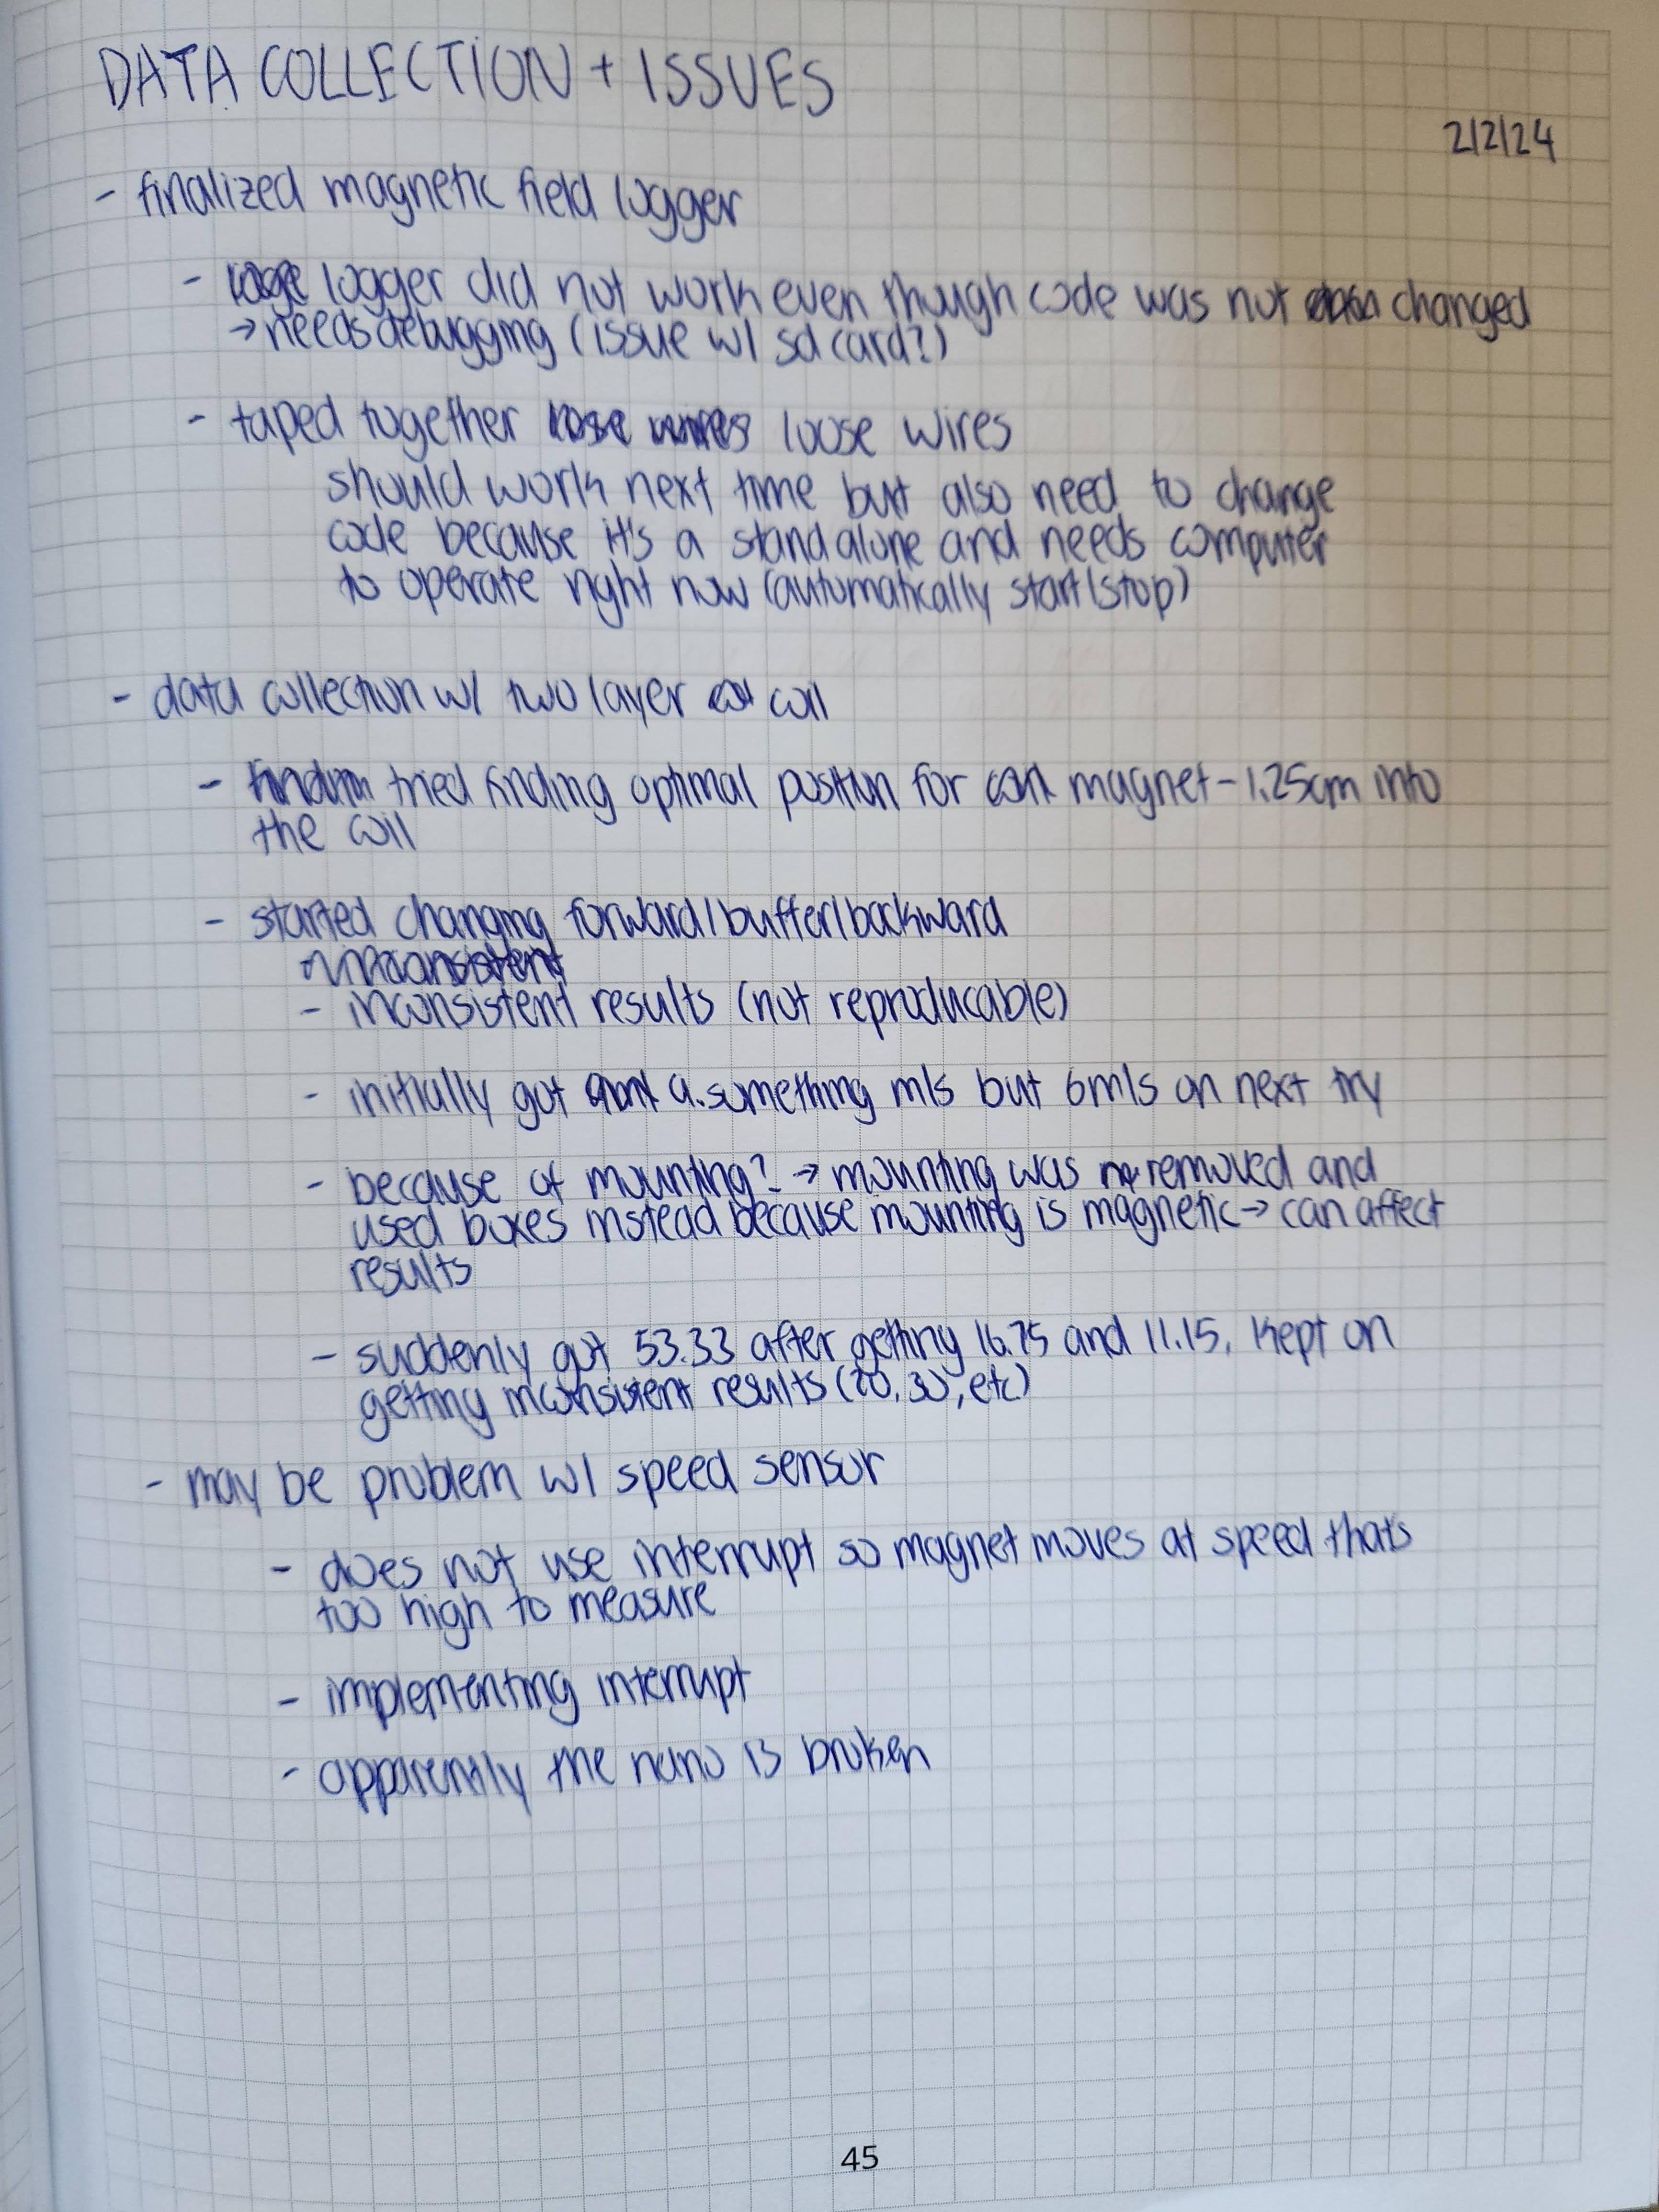 DATA COLLECTION + ISSUES
2/2/24
- finalized magnetic field logger
- logger did not work even though code was not changed
→ needs debugging (issue w/ sd card?)
- taped together loose wires loose wires
should work next time but also need to change
code because it's a standalone and needs computer
to operate right now (automatically start/stop)
- data collection w/ two layer coil
- tried finding optimal position for magnet - 1.25cm into
the coil
- started changing forward/buffer/backward
inconsistent
- inconsistent results (not reproducable)
- initially got a.something m/s but 6m/s on next try
- because of mounting? → mounting was removed and
used boxes instead because mounting is magnetic → can affect
results
- suddenly got 53.33 after getting 16.75 and 11.15, kept on
getting inconsistent results (20, 30, etc)
- may be problem w/ speed sensor
- does not use interrupt so magnet moves at speed thats
too high to measure
- implementing interrupt
- apparently the nano is broken
45